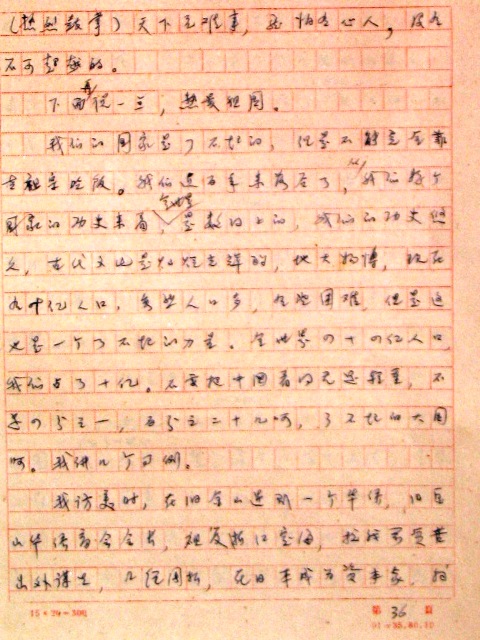 (热烈鼓掌)天下无难事,只怕有心人,没有
不可超越的。
下面再说一点,热爱祖国。
我们的国家是了不起的,但是不能完全靠
吃饭。我们近百年来落后了,从我们整个
国家的历史来看,全世界是数得上的,我们的历史悠
久,古代文化是灿烂光辉的,地大物博,现在
有十亿人口,虽然人口多,有些困难,但是这
也是一个了不起的力量。全世界四十四亿人口,
我们占了十亿。不要把中国看得无足轻重,不
是四分之一,百分之二十几啊,了不起的大国
啊。我讲几个例。
我访美时,在旧金山遇到一个华侨,旧金
山华侨商会会长,祖是浙江定海,
出外谋生,几经周折,在日本成为资本家,
15×20=300
第 36 页